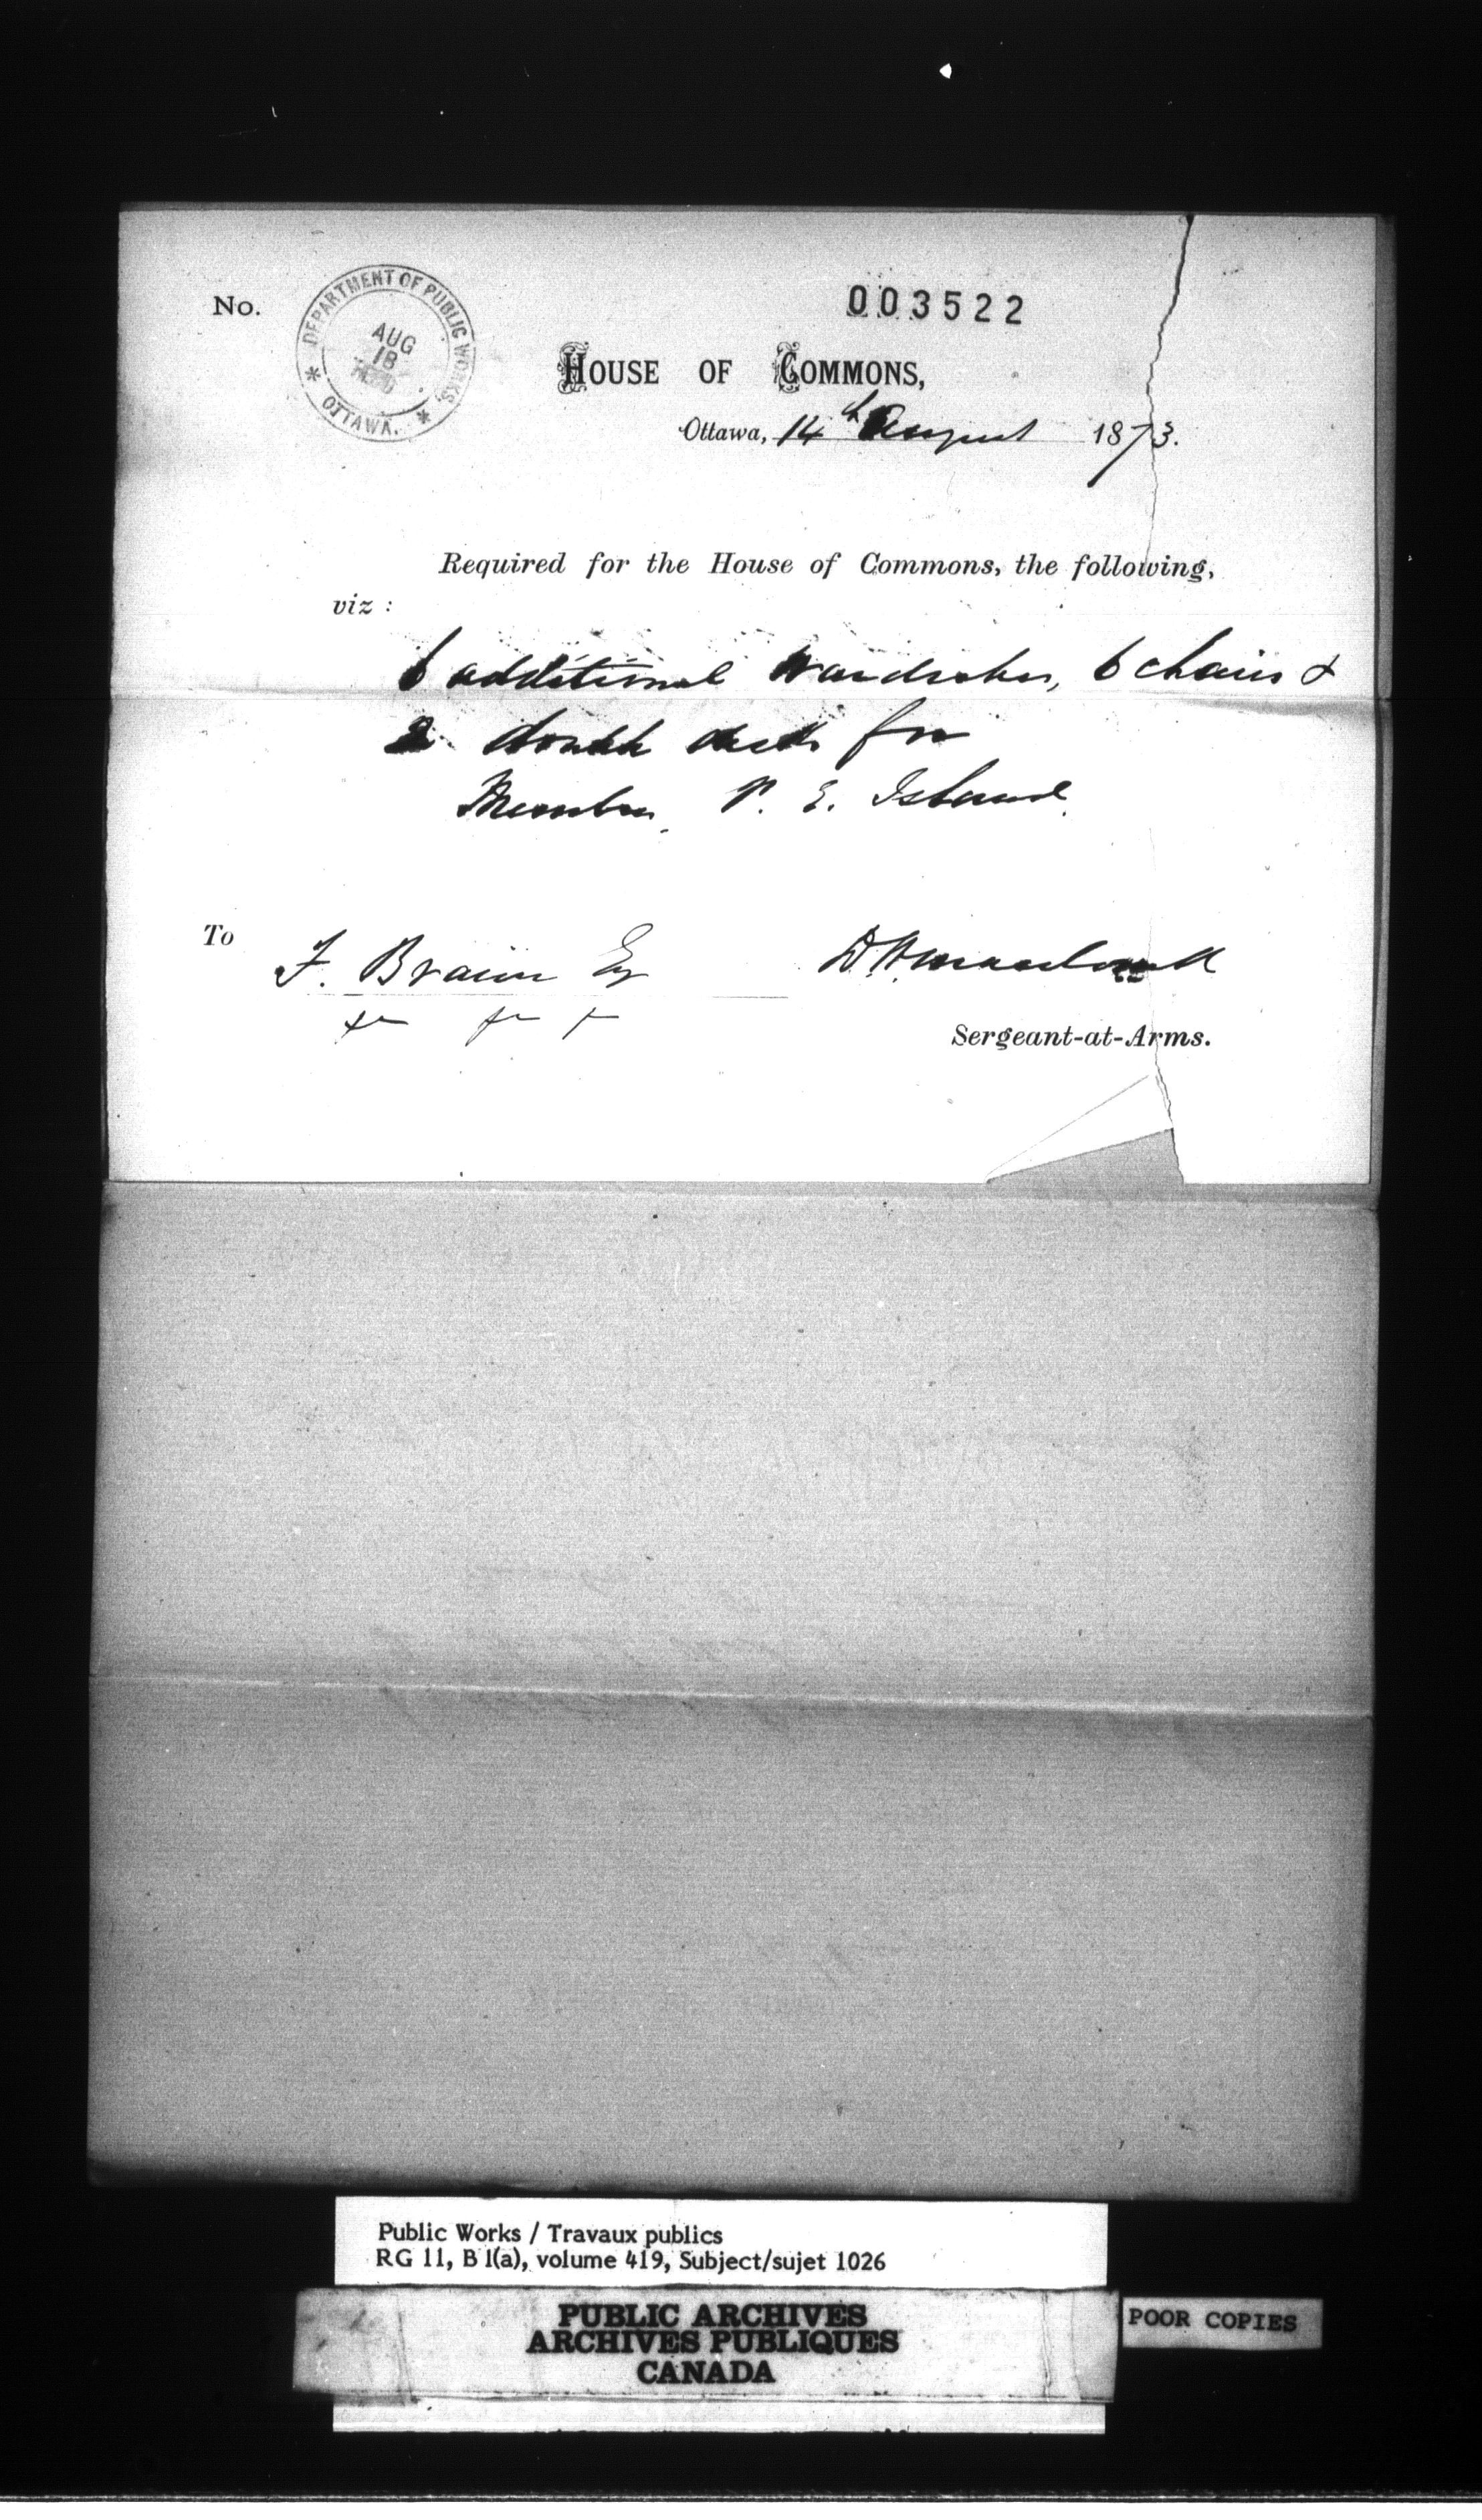 No.
DEPARTMENT OF PUBLIC WORKS,
OTTAWA.
AUG
18
003522
HOUSE OF COMMONS,
Ottawa, 14th August 1873.
Required for the House of Commons, the following,
viz :
6 additional Wardrobes, 6 chairs &
2 double desks for
Members P. E. Island.
To
F. Braun Esq
D. W. Macdonell
Sergeant-at-Arms.
Public Works / Travaux publics
RG 11, B 1(a), volume 419, Subject/sujet 1026
PUBLIC ARCHIVES
ARCHIVES PUBLIQUES
CANADA
POOR COPIES